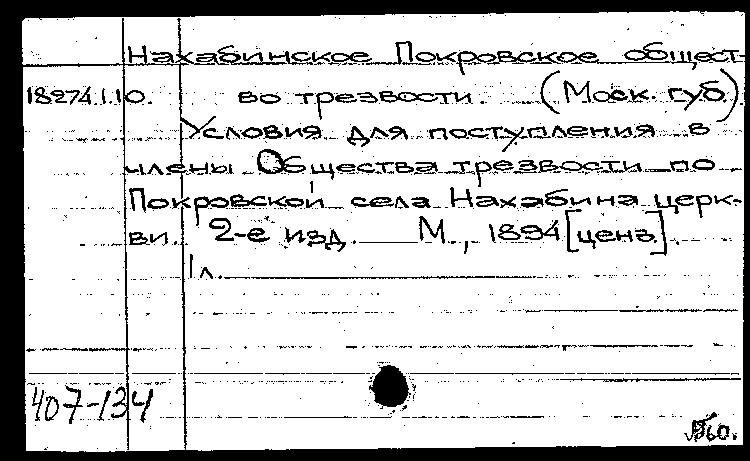 Нахабинское Покровское общест-
18274.1.10. во трезвости. (Моск. губ.)
Условия для поступления в
члены Общества трезвости по
Покровской села Нахабина церк-
ви. 2-е изд. М., 1894 [ценз.].
1 л.
407-134